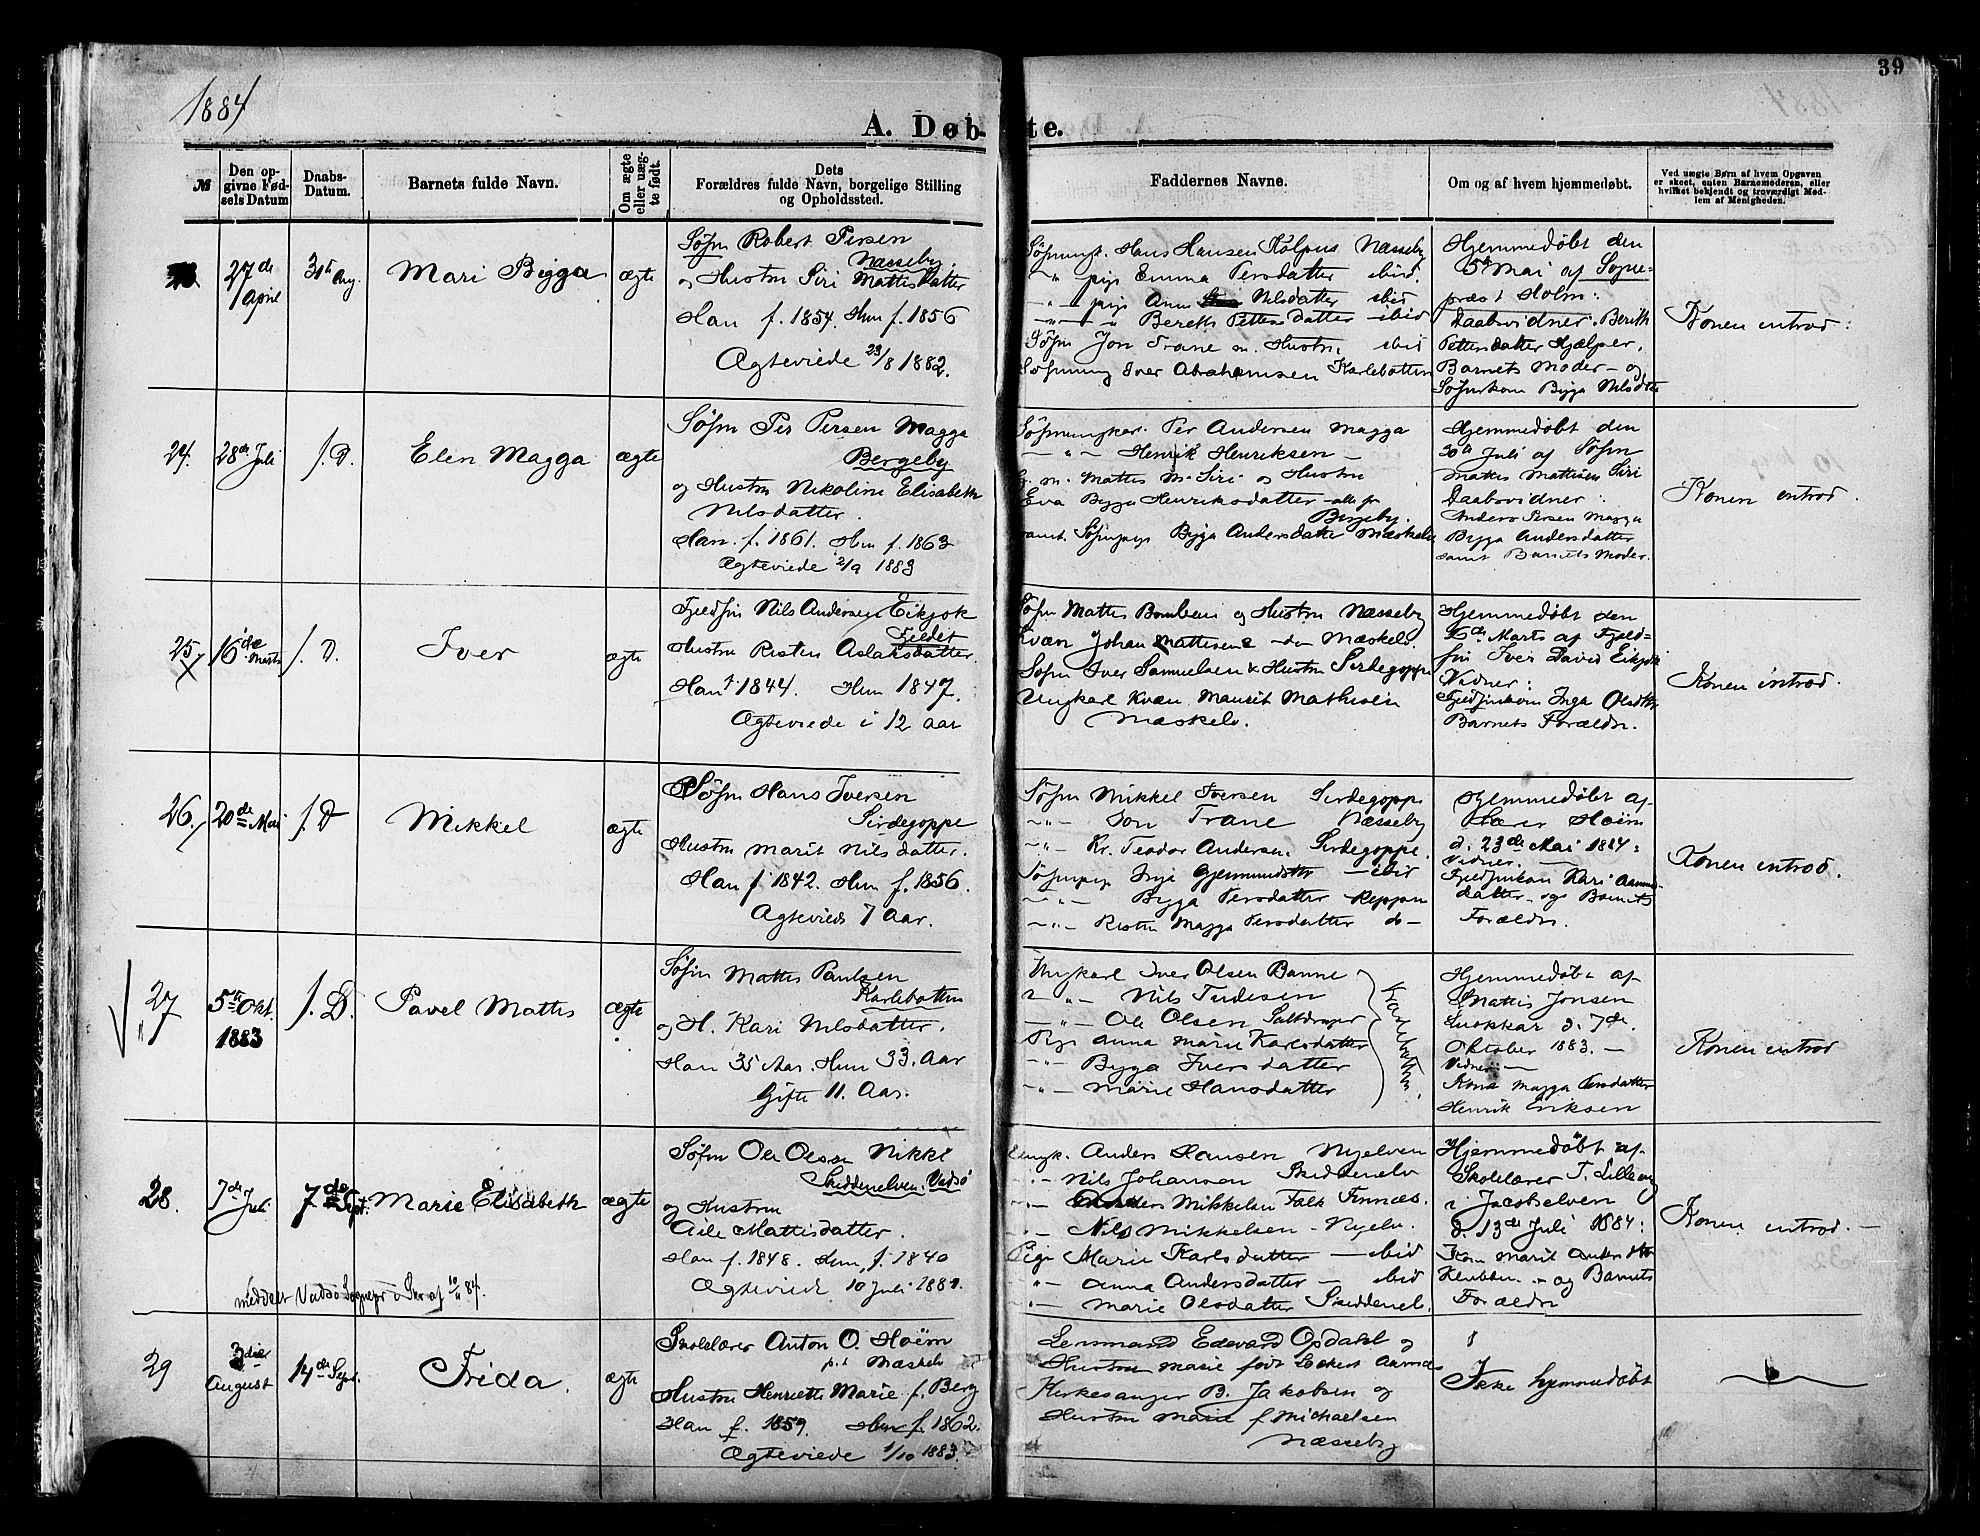 1884
39
A. Døb-te.
№
Den opgivne Fødsels Datum
Daabs-Datum.
Barnets fulde Navn.
Om ægte eller uægte født.
Dets
Forældres fulde Navn, borgelige Stilling
og Opholdssted.
Faddernes Navne.
Om og af hvem hjemmedøbt.
Ved uægte Børn af hvem Opgaven
er skeet, enten Barnemoderen, eller
hvilket bekjendt og troværdigt Med-
lem af Menigheden.
27de April
31te Aug.
Mari Bigga
ægte
Söfin Robert Persen
Næsseby.
og Hustru Siri Mattisdatter
Han f. 1854. Hun f. 1856
Ægteviede 23/8 1882.
Söfinungk. Hans Hansen Kolpus Næsseby
-"- pige Emma Persdatter ibid.
-"- pige Ann Nilsdatter ibid
-"- " Bereth Pettersdatter ibid
Söfin Jon Trane m. Hustru, ibid
Söfinung Iver Abrahamsen Karlebotten
Hjemmedøbt den
5te Mai af Sogne-
præst Holm:
Daabsvidner: Berith
Pettersdatter Hjælper,
Barnets Moder - og
Söfinkone Bigga Nilsdtr
Konen introd:
24.
28de Juli
s. D.
Elen Magga
ægte
Söfin Per Persen Magga
Bergeby
og Hustru Nikoline Elisabeth
Nilsdatter.
Han. f. 1861. Hun f. 1863
Ægteviede 2/9 1883
Söfinungkar. Per Andersen Magga
-"- Henrik Henriksen -
G. m. Mattis M. Siri og Hustru
Eva Bigga Henriksdatter - alle fr
Bergeby.
samt Söfinpige Bigga Andersdatter Mæskelv
Hjemmedøbt den
30te Juli af Söfin
Mattis Mathisen Siri
Daabsvidner:
Anders Persen Magga
Bigga Andersdatter
samt Barnets Moder.
Konen introd.
25
16de Marts
s. D.
Iver
ægte
Fjeldfin Nils Andersen Eikjok
Fjeldet
Hustru Risten Aslaksdatter.
Han f. 1844. Hun 1847.
Ægteviede i 12 Aar
Söfin Mattis Bomben og Hustru Næsseby
Kvæn Johan Mattisen - do Mæskelv.
Söfin Iver Samuelsen & Hustru Sirdegoppe
Ungkarl Kvæn Maurit Mathisen
Mæskelv.
Hjemmedøbt den
16de Marts af Fjeld-
fin Iver David Eikjok
Vidner:
Fjeldfinkone Inga Olsdtr
Barnets Forældre.
Konen introd.
26.
20de Mai
s. D
Mikkel
ægte
Söfin Hans Iversen
Sirdegoppe
Hustru Marit Nilsdatter.
Han f 1842. Hun f. 1856.
Ægteviede 7 Aar.
Söfin Mikkel Iversen Sirdegoppe
-"- Jon Trane Næsseby
-"- Kr. Teodor Andersen. Sirdegoppe.
Söfinpige Inga Gjermundsdtr - ibid
-"- Bigga Persdatter Reppen
-"- Risten Magga Persdatter do-
Hjemmedøbt af
Lærer Hoëm
d. 23de Mai 1884:
Vidner. -
Fjeldfinkon Kari
datter - og Barnets
Forældre.
Konen introd.
27
5te Okt.
1883
s. D.
Pavel Mattis
ægte
Söfin Mattis Paulsen
Karlebotten
og H. Kari Nilsdatter.
Han 35 Aar. Hun 33. Aar
Gifte 11. Aar.
Ungkarl Iver Olsen Banne
-"- Nils Tudesen
-"- Ole Olsen
Pige Anna Marie Karlsdatter
-"- Bigga Iversdatter
-"- Marie Hansdatter
Karlebotten.
Hjemmedøbt af
Mattis Jonsen
d. 7de.
Oktober 1883. -
Vidner: -
Kone Magga Persdatter
Henrik Eriksen
Konen introd
28.
7de Juli
7de Sept.
Marie Elisabeth
ægte
Söfin Ole Olsen Nikki
Skiddenelven. Vadsö
og Hustru
Aile Mattisdatter.
Han f. 1848. Hun f. 1840
Ægteviede 10 Juli 1881.
meddelt Vadsö Sognepr i Skr af 10/11 84.
Ungk. Anders Hansen Nyelven
-"- Nils Johansen Skiddenelv
-"- Anders Mikkelsen Falk Finnæs.
-"- Nils Mikkelsen - Nyelv.
Pige Marie Karlsdatter - ibid
-"- Anna Andersdatter - ibid
-"- Marie Olsdatter Skiddenelv.
Hjemmedøbt af
Skolelærer T. Lilleeng
i Jacobselven
d. 13de Juli 1884:
Kone Marit Andersdtr
Klubben - og Barnets
Forældre
Konen introd. -
29
3die August
14de Sept.
Frida.
ægte
Skolelærer Anton O. Hoëm
p.t Mæskelv
Hustru Henriette Marie f. Berg
Han f. 1859. Hun f. 1862.
Ægteviede 1/10 1883.
Lensmand Edevard Opdahl og
Hustru Marie født Eckert
Kirkesanger B. Jakobsen og
Hustru Marie f Michaelsen
Næsseby
Ikke hjemmedøbt